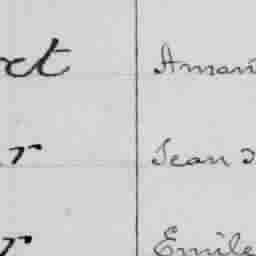 ct Aman
r Jean
r Emile